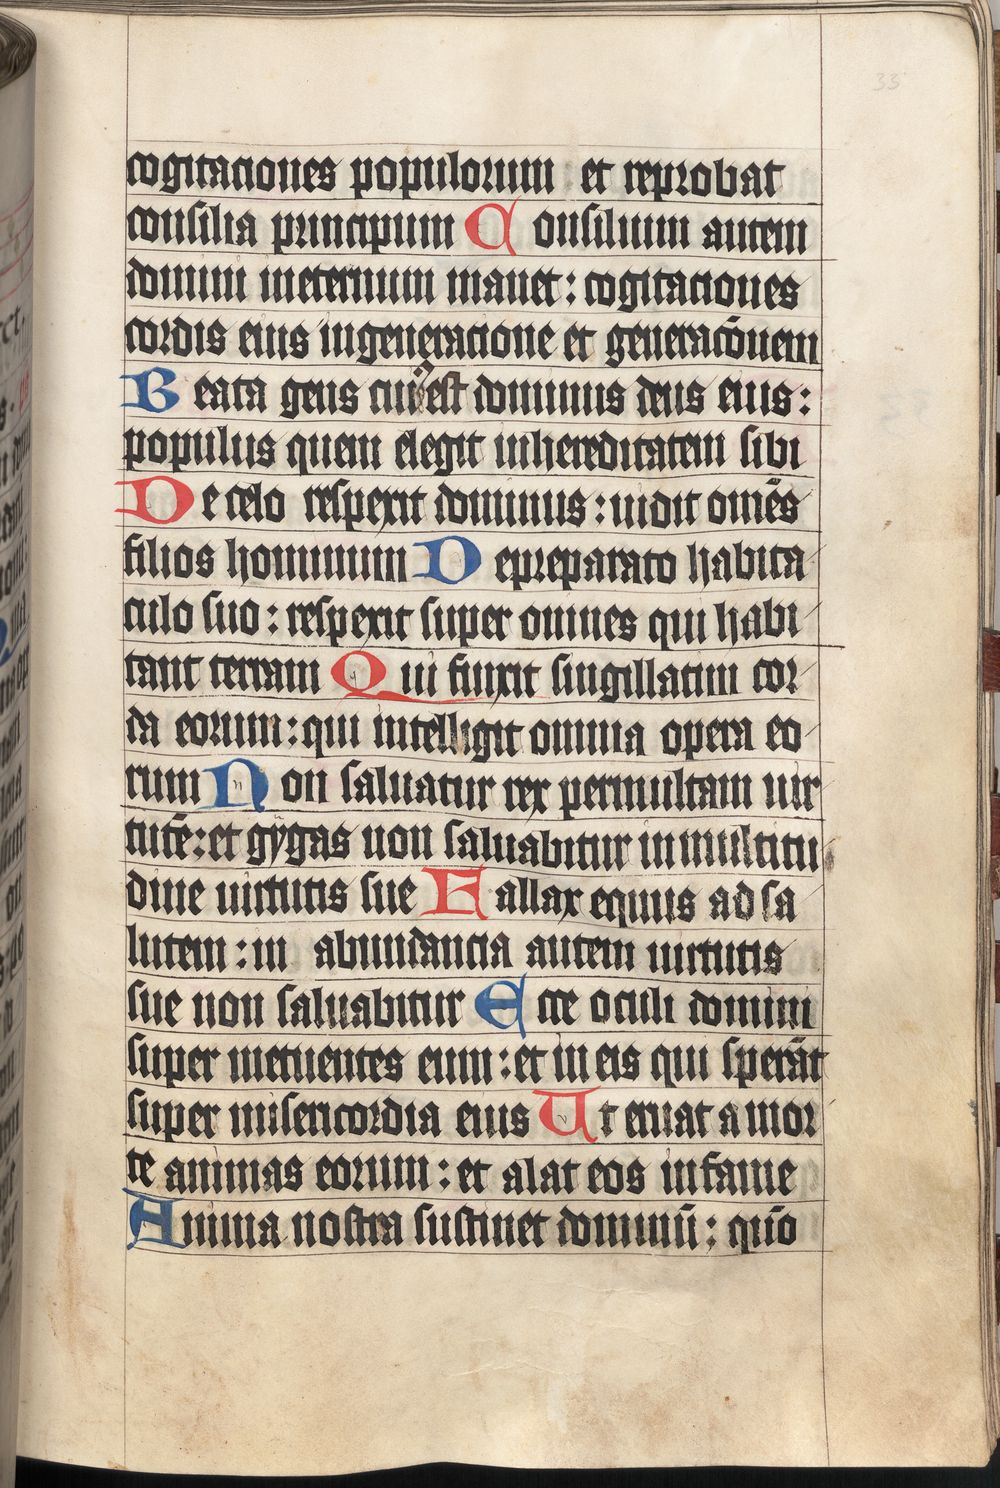 33
cogitaciones populorum : et reprobat
consilia principum Consilium autem
domini ineternum manet : cogitaciones
cordis eius ingeneracione et generacōnem
Beata gens cui⁹ est dominus deus eius :
populus quem elegit inhereditatem sibi
De celo respexit dominus : uidit omēs
filios hominum Depreparato habita
culo suo : respexit super omnes qui habi
tant terram Qui finxit singillatim cor
da eorum : qui intelligit omnia opera eo
rum Non saluatur rex permultam uir
tutē : et gygas non saluabitur inmultitu
dine uirtutis sue Fallax equus ad sa
lutem : in abundancia autem uirtutis
sue non saluabitur Ecce oculi domini
super metuentes eum : et in eis qui sperāt
super misericordia eius Ut eruat a mor
te animas eorum : et alat eos in fame
Anima nostra sustinet dominū : qūo